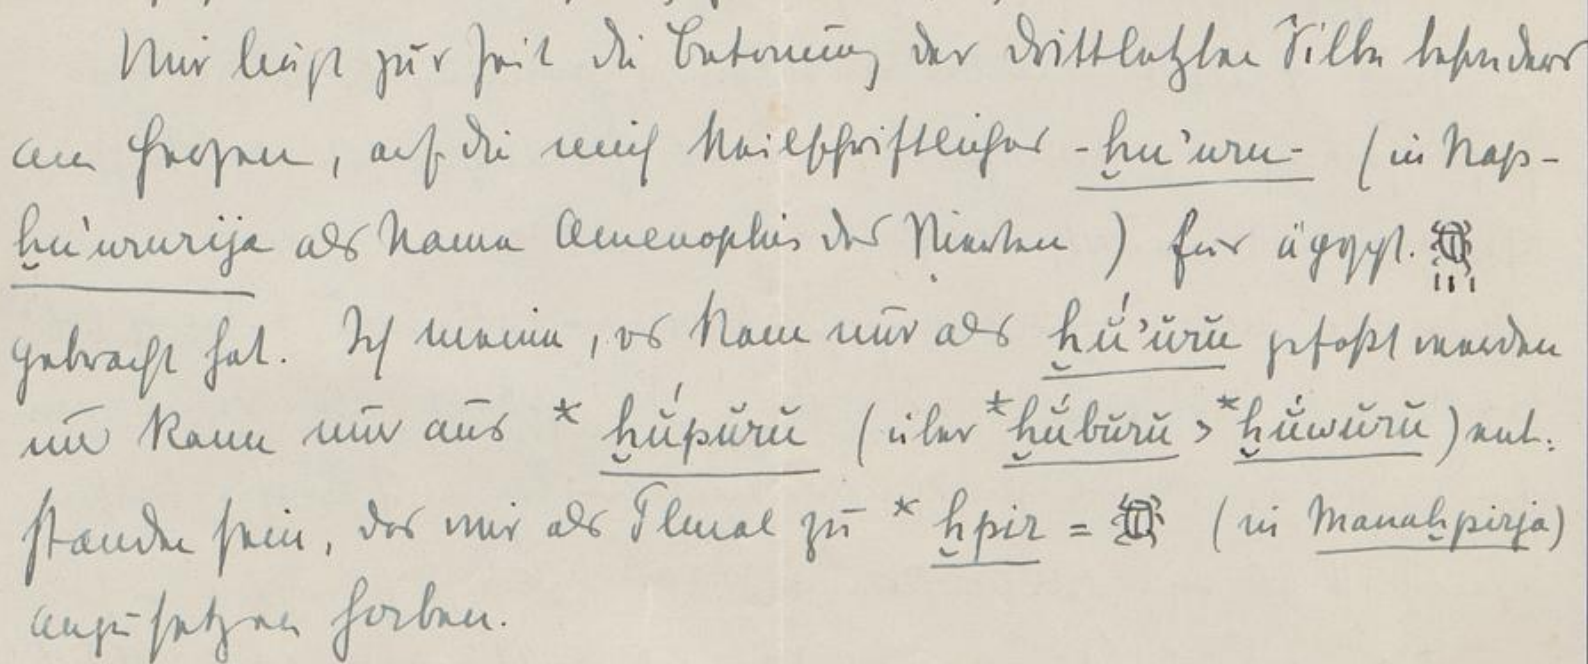 Mir liegt zur Zeit die Betonung der drittletzten Silbe besonders
am Herzen, auf die mich keilschriftliches -ḫu'uru- (in Nap-
ḫu'ururija als Name Amenophis des Vierten) für ägypt. 𓆣𓏥
gebracht hat. Ich meine, es kann nur als ḫŭ́'ŭrŭ gefaßt werden
und kann nur aus *ḫŭ́pŭrŭ (über *ḫŭ́bŭrŭ > *ḫŭ́wŭrŭ) ent-
standen sein, das wir als Plural zu *ḫpir = 𓆣 (in Manaḫpirja)
anzusetzen haben.